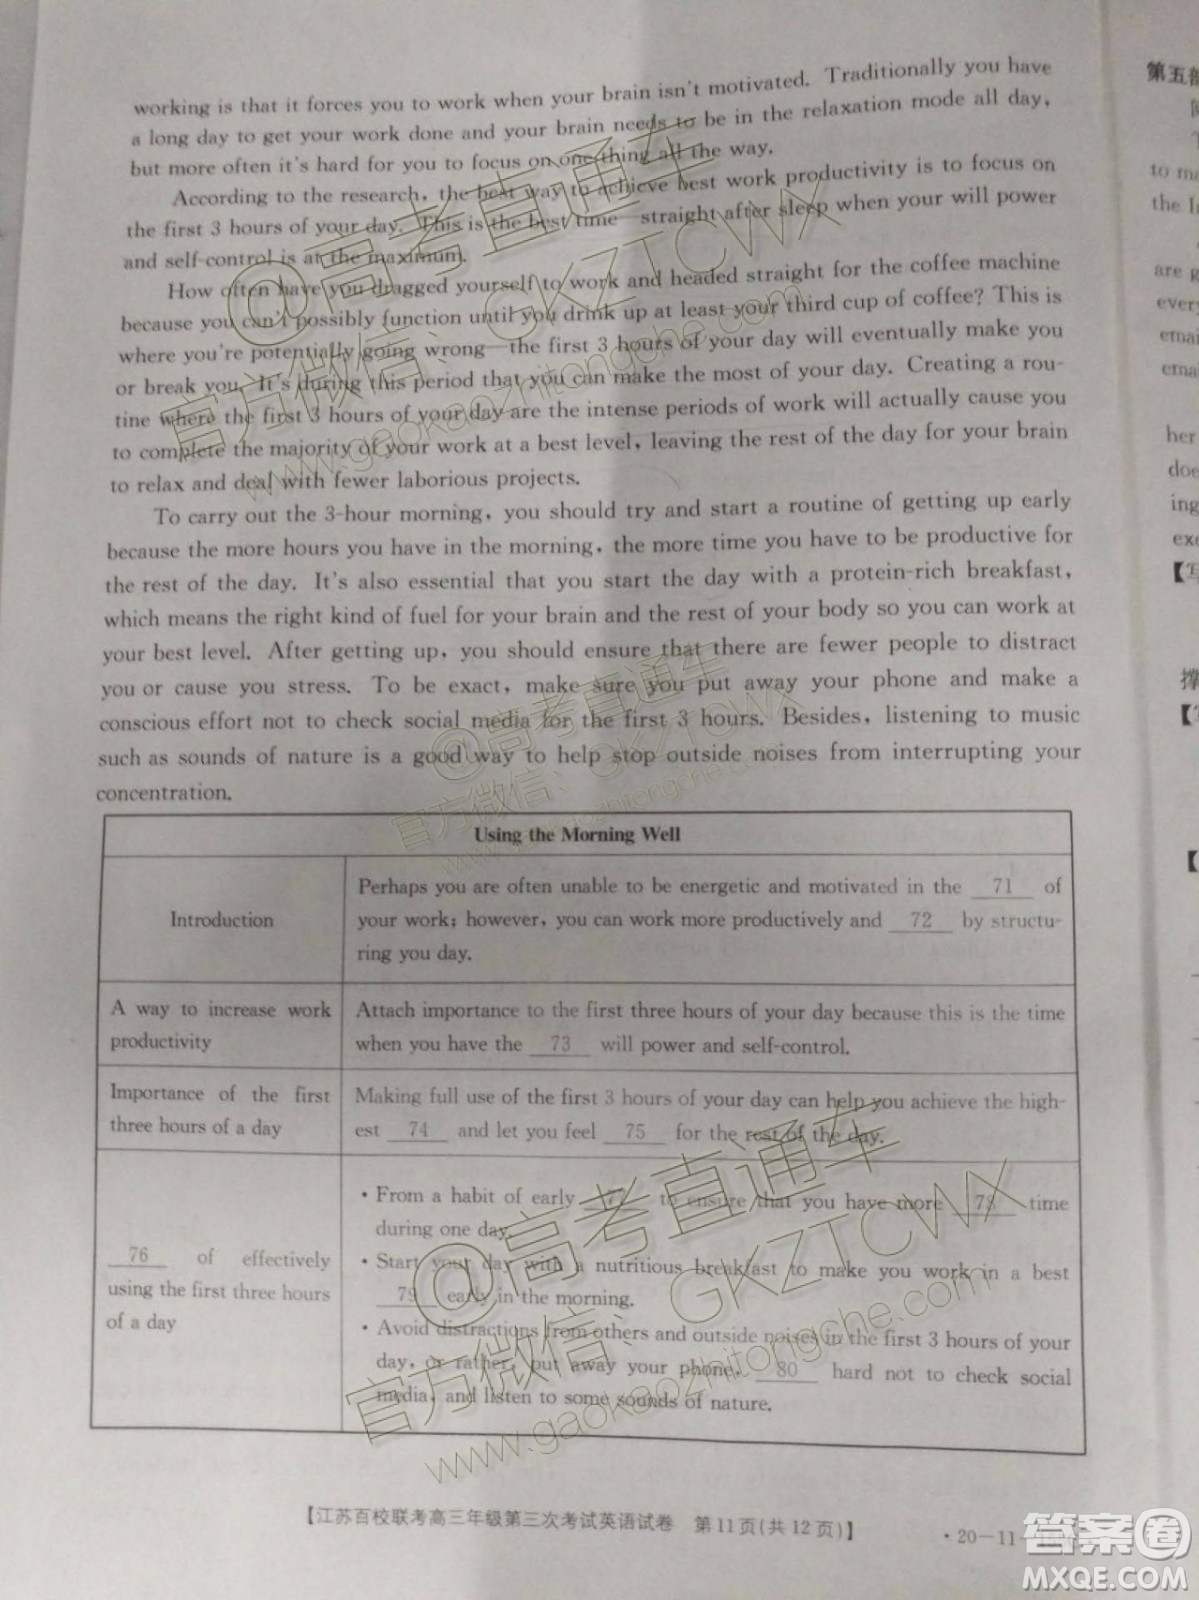 working is that it forces you to work when your brain isn't motivated. Traditionally you have
a long day to get your work done and your brain needs to be in the relaxation mode all day,
but more often it's hard for you to focus on one thing all the way.
According to the research, the best way to achieve best work productivity is to focus on
the first 3 hours of your day. This is the best time—straight after sleep when your will power
and self-control is at the maximum.
How often have you dragged yourself to work and headed straight for the coffee machine
because you can't possibly function until you drink up at least your third cup of coffee? This is
where you're potentially going wrong—the first 3 hours of your day will eventually make you
or break you. It's during this period that you can make the most of your day. Creating a rou-
tine where the first 3 hours of your day are the intense periods of work will actually cause you
to complete the majority of your work at a best level, leaving the rest of the day for your brain
to relax and deal with fewer laborious projects.
To carry out the 3-hour morning, you should try and start a routine of getting up early
because the more hours you have in the morning, the more time you have to be productive for
the rest of the day. It's also essential that you start the day with a protein-rich breakfast,
which means the right kind of fuel for your brain and the rest of your body so you can work at
your best level. After getting up, you should ensure that there are fewer people to distract
you or cause you stress. To be exact, make sure you put away your phone and make a
conscious effort not to check social media for the first 3 hours. Besides, listening to music
such as sounds of nature is a good way to help stop outside noises from interrupting your
concentration.
Using the Morning Well
Introduction
Perhaps you are often unable to be energetic and motivated in the 71 of
your work; however, you can work more productively and 72 by structu-
ring you day.
A way to increase work
productivity
Attach importance to the first three hours of your day because this is the time
when you have the 73 will power and self-control.
Importance of the first
three hours of a day
Making full use of the first 3 hours of your day can help you achieve the high-
est 74 and let you feel 75 for the rest of the day.
76 of effectively
using the first three hours
of a day
• From a habit of early 77 to ensure that you have more 78 time
during one day.
• Start your day with a nutritious breakfast to make you work in a best
79 early in the morning.
• Avoid distractions from others and outside noises in the first 3 hours of your
day, or rather, put away your phone, 80 hard not to check social
media, and listen to some sounds of nature.
【江苏百校联考高三年级第三次考试英语试卷 第11页(共12页)】
·20-11-
第五
to ma
the I
are g
every
emai
ema
her
doe
ing
exe
【写
撑
@高考直通车
官方微信：GKZTCWX
www.gaokaozhitongche.com
@高考直通车
官方微信：GKZTCWX
www.gaokaozhitongche.com
@高考直通车
官方微信：GKZTCWX
www.gaokaozhitongche.com
答案圈
MXQE.COM